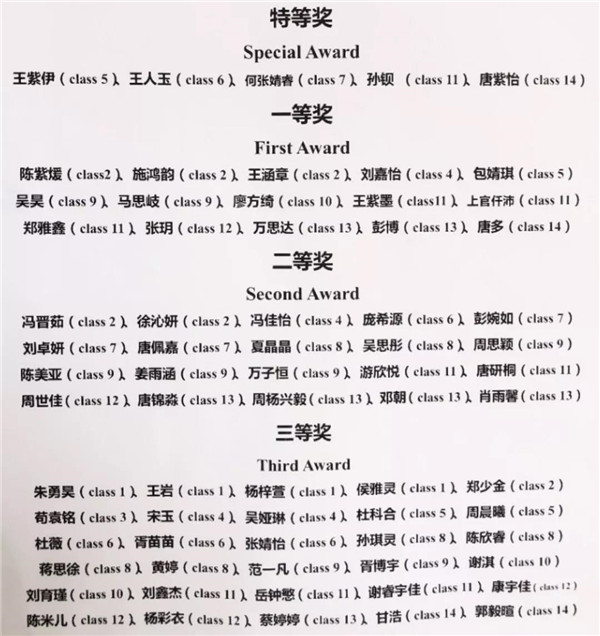 特等奖
Special Award
王紫伊（class 5）、王人玉（class 6）、何张婧睿（class 7）、孙钡（class 11）、唐紫怡（class 14）
一等奖
First Award
陈紫煖（class2）、施鸿韵（class 2）、王涵章（class 2）、刘嘉怡（class 4）、包婧琪（class 5）
吴昊（class 9）、马思岐（class 9）、廖方绮（class 10）、王紫墨（class11）、上官仟沛（class 11）
郑雅鑫（class 11）、张玥（class 12）、万思达（class 13）、彭博（class 13）、唐多（class 14）
二等奖
Second Award
冯晋茹（class 2）、徐沁妍（class 2）、冯佳怡（class 4）、庞希源（class 6）、彭婉如（class 7）
刘卓妍（class 7）、唐佩嘉（class 7）、夏晶晶（class 8）、吴思彤（class 8）、周思颖（class 9）
陈美亚（class 9）、姜雨涵（class 9）、万子恒（class 9）、游欣悦（class 11）、唐研桐（class 11）
周世佳（class 12）、唐锦淼（class 13）、周杨兴毅（class 13）、邓朝（class 13）、肖雨馨（class 13）
三等奖
Third Award
朱勇昊（class 1）、王岩（class 1）、杨梓萱（class 1）、侯雅灵（class 1）、郑少金（class 2）
荀袁铭（class 3）、宋玉（class 4）、吴娅琳（class 4）、杜科合（class 5）、周晨曦（class 5）
杜薇（class 6）、胥苗苗（class 6）、张婧怡（class 6）、孙琪灵（class 8）、陈欣睿（class 8）
蒋思徐（class 8）、黄婷（class 8）、范一凡（class 9）、胥博宇（class 9）、谢淇（class 10）
刘育瑾（class 10）、刘鑫杰（class 11）、岳钟憨（class 11）、谢睿宇佳（class 11）、康宇佳（class 12）
陈米儿（class 12）、杨彩衣（class 12）、蔡婷婷（class 13）、甘浩（class 14）、郭毅暄（class 14）